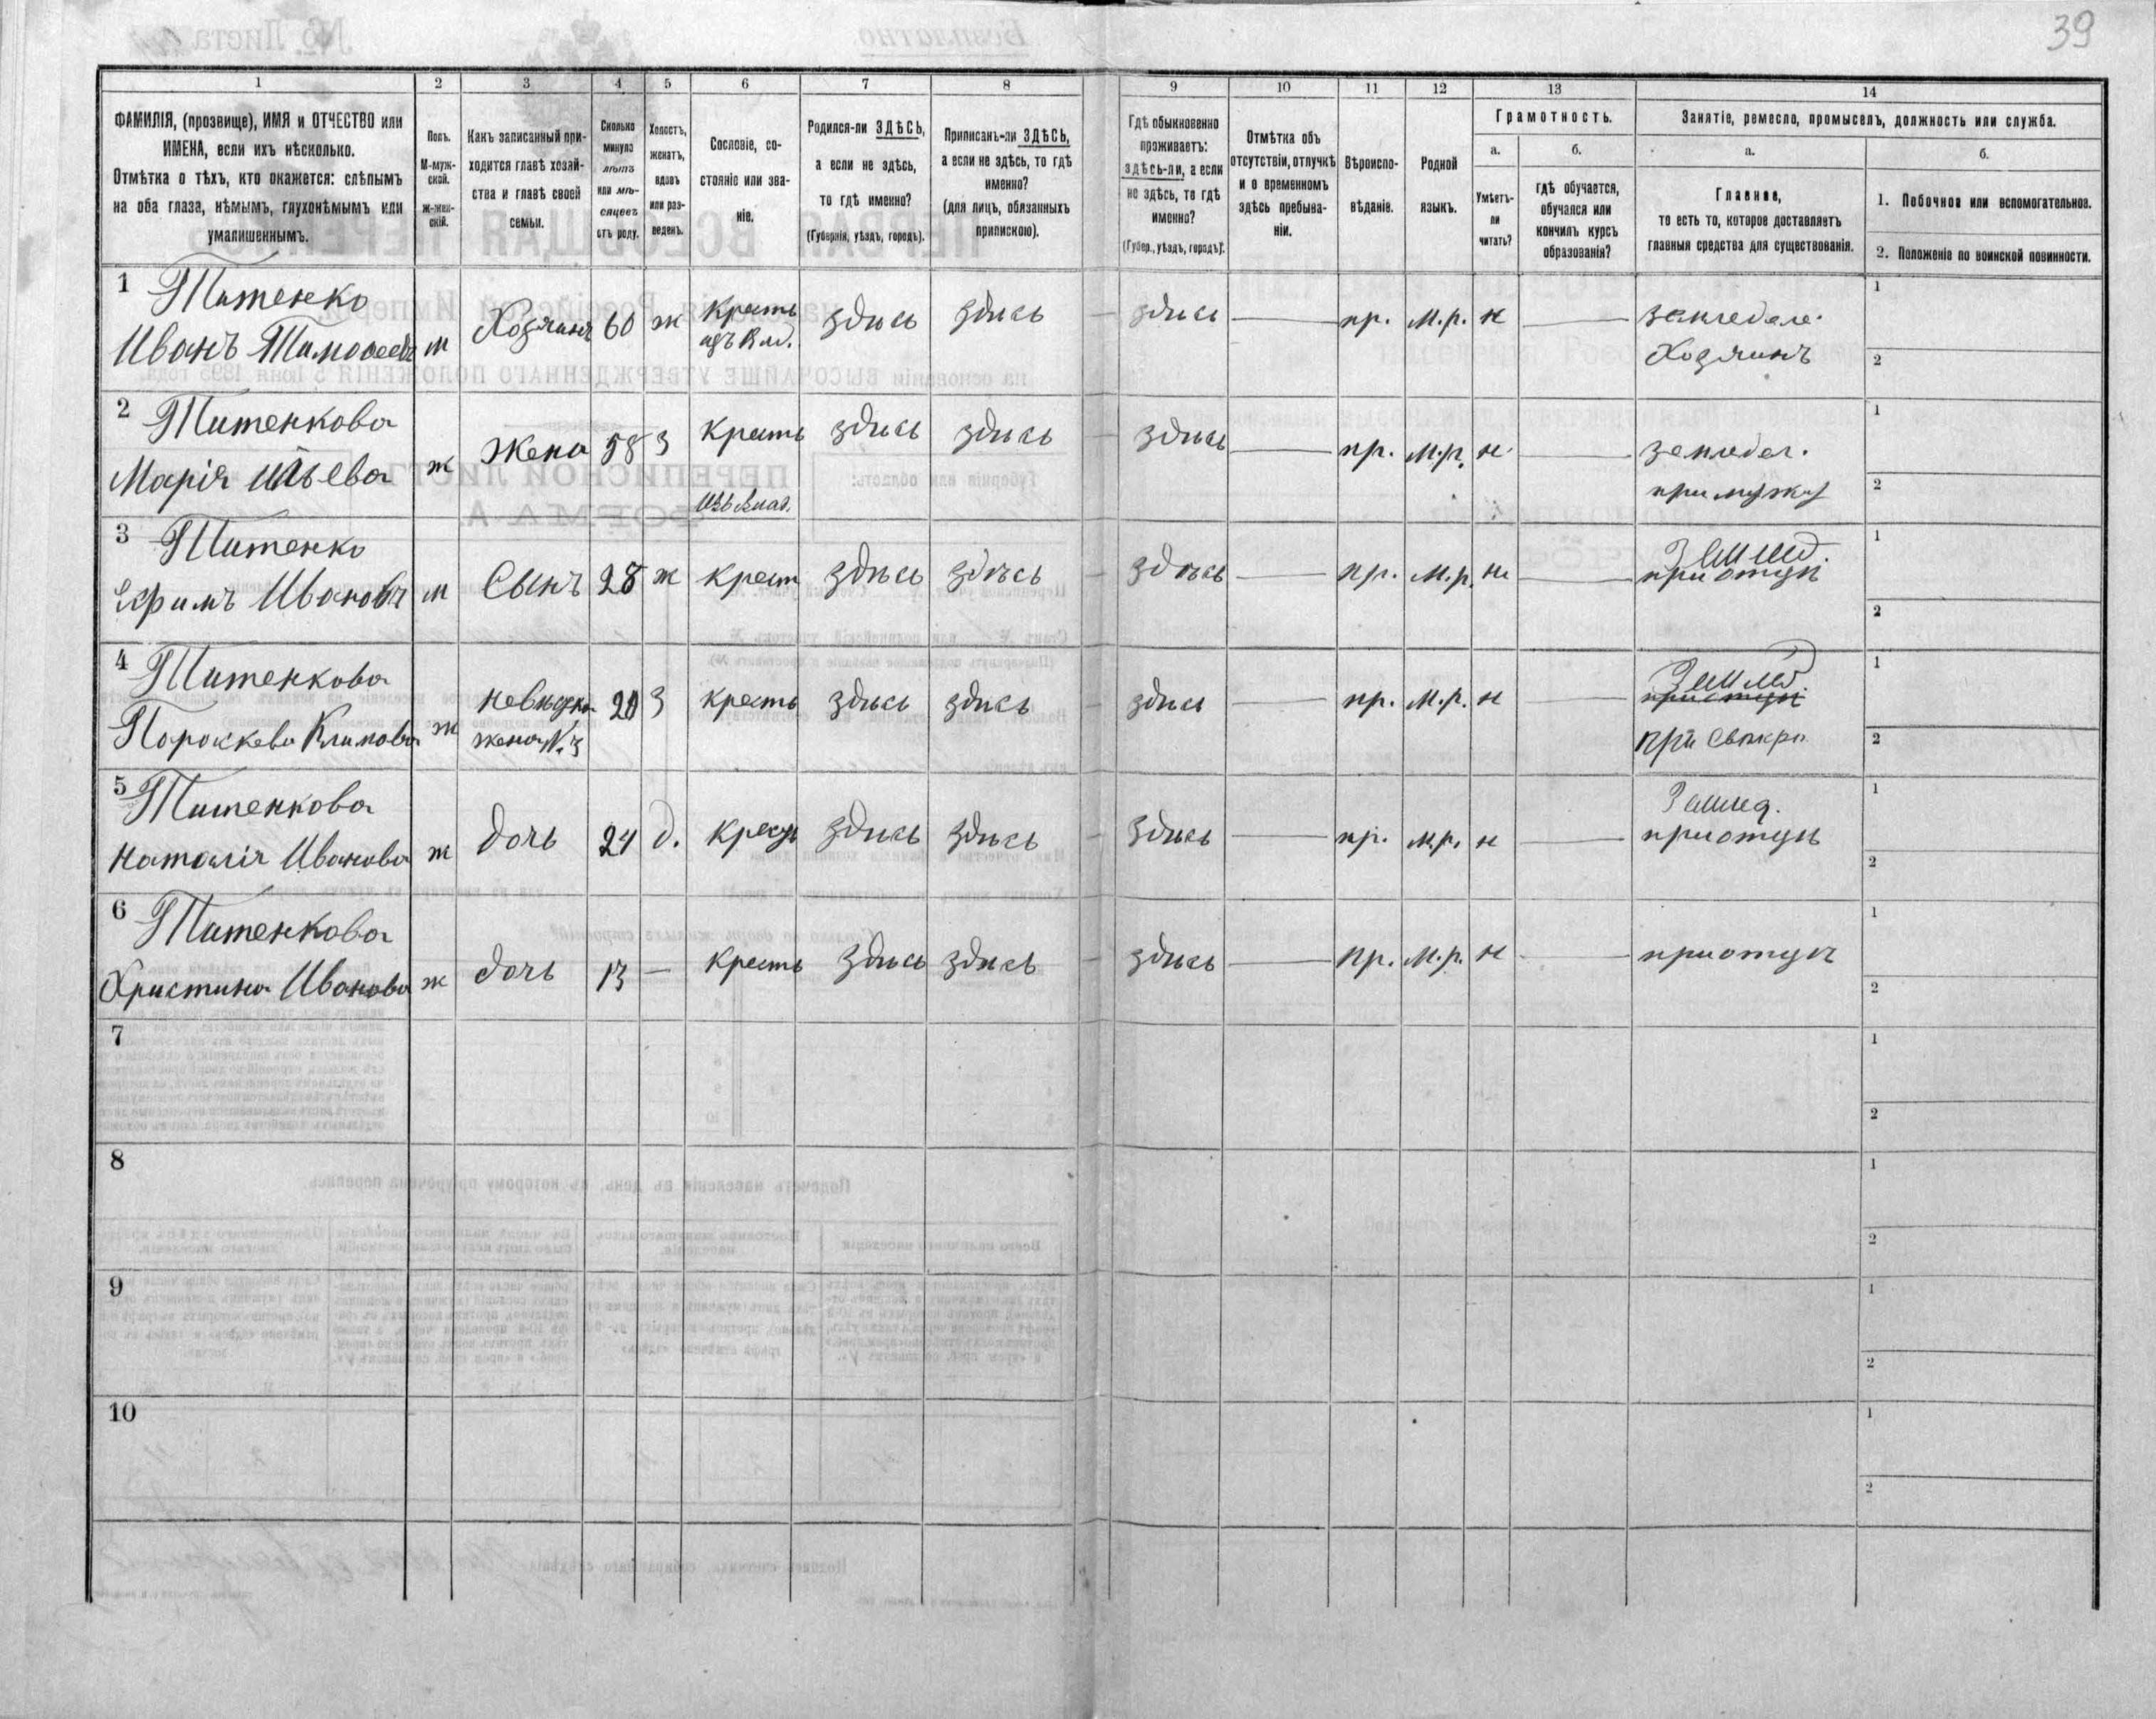 39
1 2 3 4 5 6 7 8 9 10 11 12 13 14
ФАМИЛІЯ, (прозвище), ИМЯ и ОТЧЕСТВО или
ИМЕНА, если ихъ нѣсколько.
Отмѣтка о тѣхъ, кто окажется: слѣпымъ
на оба глаза, нѣмымъ, глухонѣмымъ или
умалишеннымъ.
Полъ.
М-муж-
ской.
Ж-жен-
скій.
Какъ записанный при-
ходится главѣ хозяй-
ства и главѣ своей
семьи.
Сколько
минуло
лѣтъ
или мѣ-
сяцевъ
отъ роду.
Холостъ,
женатъ,
вдовъ
или раз-
веденъ.
Сословіе, со-
стояніе или зва-
ніе.
Родился-ли ЗДѢСЬ,
а если не здѣсь,
то гдѣ именно?
(Губернія, уѣздъ, городъ).
Приписанъ-ли ЗДѢСЬ,
а если не здѣсь, то гдѣ
именно?
(для лицъ, обязанныхъ
припискою).
Гдѣ обыкновенно
проживаетъ:
здѣсь-ли, а если
не здѣсь, то гдѣ
именно?
(Губер., уѣздъ, городъ).
Отмѣтка объ
отсутствіи, отлучкѣ
и о временномъ
здѣсь пребыва-
ніи.
Вѣроиспо-
вѣданіе.
Родной
языкъ.
Грамотность.
а.
Умѣетъ-
ли
читать?
б.
гдѣ обучается,
обучался или
кончилъ курсъ
образованія?
Занятіе, ремесло, промыселъ, должность или служба.
а.
Главное,
то есть то, которое доставляетъ
главныя средства для существованія.
б.
1. Побочное или вспомогательное.
2. Положеніе по воинской повинности.
1 Титенко
Иванъ Тимофеевъ м Хозяинъ 60 ж Кресть здѣсь здѣсь здѣсь — пр. м.р. н — земледеле.
изъ влад.
Хозяинъ
1
2
2 Титенкова
Марія Ильева ж Жена 58 з Кресть здѣсь здѣсь здѣсь — пр. м.р. н. — земледел.
изъ влад.
при мужѣ
1
2
3 Титенко
Ефимъ Ивановъ м Сынъ 28 ж крест здѣсь здѣсь здѣсь — пр. м.р. н — Землед.
при отцѣ
1
2
4 Титенкова
Пораскева Климова ж невѣстка 20 з кресть здѣсь здѣсь здѣсь — пр. м.р. н — Землед.
жена №3
при отцѣ
при свекрѣ
1
2
5 Титенкова
Наталія Иванова ж дочь 24 д. кресть здѣсь здѣсь здѣсь — пр. м.р. н — Землед.
при отцѣ
1
2
6 Титенкова
Христина Иванова ж дочь 13 — кресть здѣсь здѣсь здѣсь — пр. м.р. н — при отцѣ
1
2
7
1
2
8
1
2
9
1
2
10
1
2